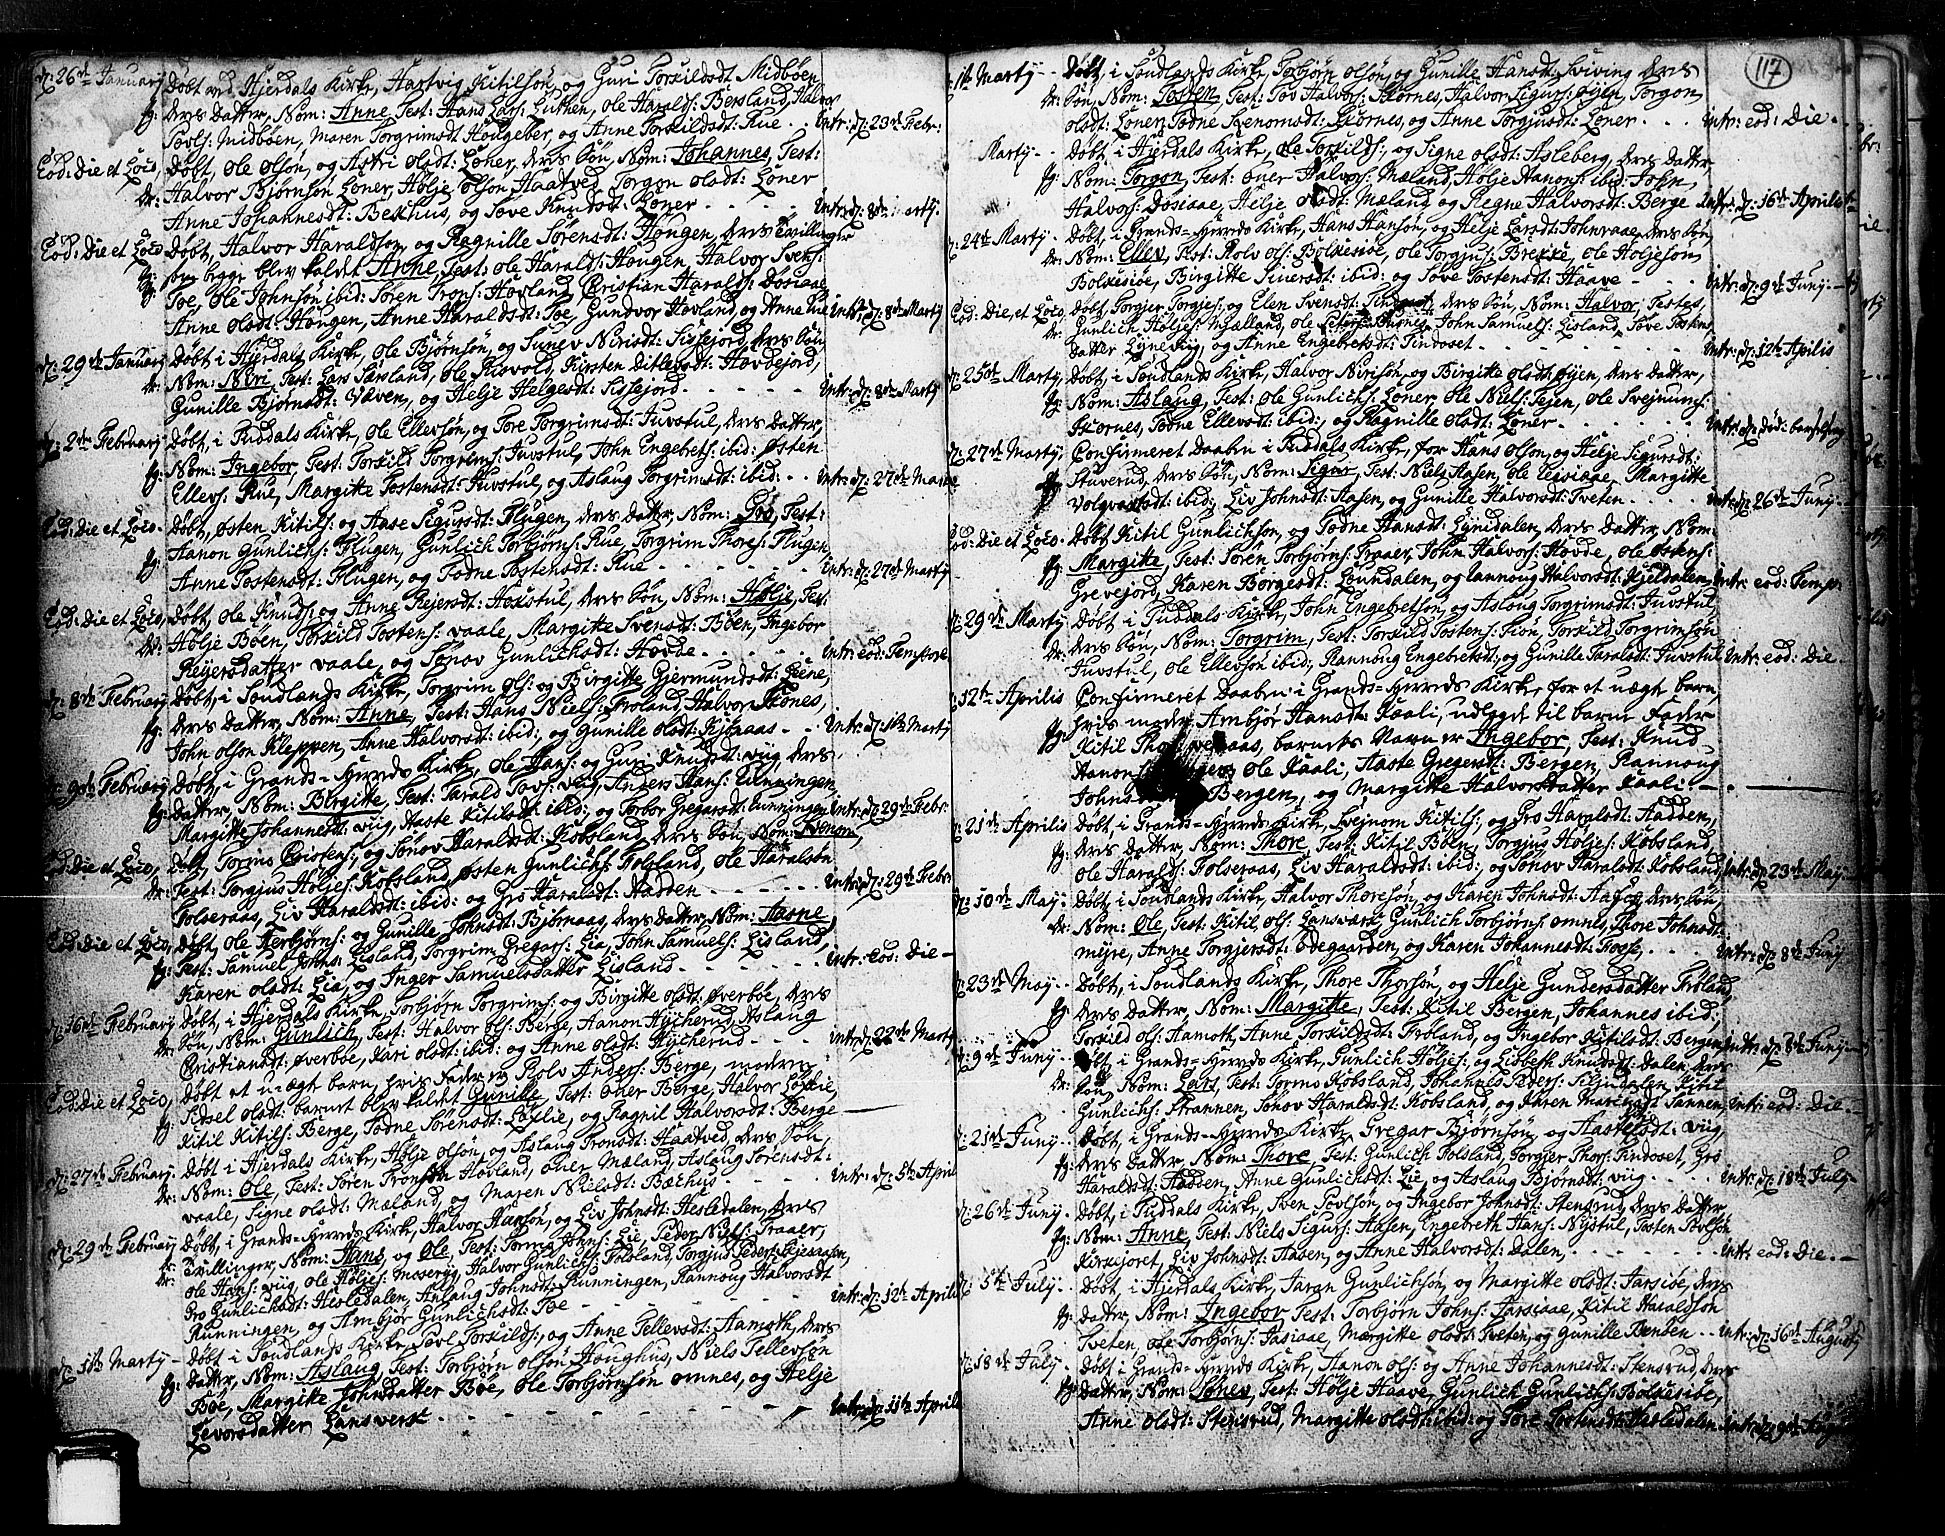 d: 26de Januarij Døbt ved Hjerdals Kirke, Hartvig Kitilsøn, og Guri Torkildsdt: Midbøen,
fg: deres Datter, Nom: Anne, Test: Hans Lars: Luthen, Ole Haralds: Bersland, Halvor
Povls: Midbøen, Maren Torgrimsdt: Hougeber, og Anne Torkildsdt: Rue. Intr: d: 23de Febr:
Eod: Die et Loco, Døbt, Ole Olsøn, og Astri Olsdt: Løner, deres Søn, Nom: Johannes, Test:
dr: Halvor Bjørnsøn Løner, Hølje Olsøn Haatved, Torgon Olsdt: Løner
Anne Johannesdt: Bekhus, og Tove Knudsdt: Løner - - - Intr: d: 8de Martij.
Eod: Die et Loco Døbt, Halvor Haraldsøn, og Ragnille Sørensdt: Hougen, deres Tvillinger
fg: begge blev kaldet Anne, Test: Ole Haralds: Hougen, Halvor Svens:
fg: Toe, Ole Johnsøn ibid: Søren Trons: Hovland, Christian Haralds: Dosiaae,
Anne Olsdt: Hougen, Anne Haraldsdt: Toe, Gundvor Hovland, og Anne Rue Intr: d: 8de Martij
d: 29de Januarij Døbt i Hjerdals Kirke, Ole Bjørnsøn, og Sunev Nirisdt: Sisjejord, deres Søn
dr: Nom: Niri, Test: Lars Sarsland, Ole Risvold, Kirsten Ditlevsdt: Hovdejord,
Gunille Bjørnsdt: Væven, og Helje Helgesdt: Sisjejord - - - Intr: d: 8de Martij
d: 2de Februarij Døbt, i Tuddals Kirke, Ole Ellevsøn, og Tore Torgrimsdt: Juvstul, deres Datter,
fg: Nom: Ingebor, Test: Torkild Torgrims: Juvstul, John Engebrets: ibid: Østen
Ellevs: Rue, Margitte Tostensdt: Juvstul, og Aslaug Torgrimsdt: ibid: - - Intr: d: 27de Martij
Eod: Die et Loco. Døbt, Østen Kitils: og Aase Sigursdt: Flugen, deres Datter, Nom: Gro, Test:
fg: Aanon Gunlichs: Flugen, Gunlich Torbjørns: Rue, Torgrim Thores: Flugen
Anne Tostensdt: Flugen, og Todne Tostensdt: Rue - - - Intr: d: 27de Martij
Eod: Die et Loco, Døbt, Ole Knuds: og Anne Reiersdt: Hoxstul, deres Søn, Nom: Hølje, Test:
dr: Hølje Bøen, Torkild Tostens: Vaale, Margitte Svensdt: Bøen, Ingebor
Reyersdatter Vaale, og Sønov Gunlichsdt: Hovde - - - Intr: eod: Tempore
d: 8de Februarij Døbt, i Soudlands Kirke, Torgrim Ols: og Birgitte Gjermundsdt: Leene,
fg: deres Datter, Nom: Anne, Test: Hans Niels: Froland, Halvor Skornes,
John Olsøn Kleppen, Anne Halvorsdt: ibid: og Gunille Olsdt: Kjøraas - - Intr: d: 1ste Martij
d: 9de Februarij Døbt, i Grands-Herreds Kirke, Ole Hans: og Guri Knudsdt: Viig, deres
fg: Datter, Nom: Birgitte, Test: Tarald Povs: Viig, Anders Hans: Lunningen,
Margitte Johannesdt: Viig, Haste Kitilsdt: ibid: og Torbor Gregarsdt: Lunningen Intr: d: 29de Febr:
Eod: Die et Loco, Døbt, Tormo Tostens: og Sønov Haraldsdt: Kobsland, deres Søn, Nom: Svenom,
dr: Test: Torgjus Høljes: Kobsland, Østen Gunlichs: Folsland, Ole Haralsøn
Folseraas, Liv Haraldsdt: ibid: og Gro Haraldsdt: Hadden - - - Intr: d: 29de Febr:
Eod: Die et Loco, Døbt, Ole Herbjørns: og Gunille Johnsdt: Bjørnaas, deres Datter, Nom: Aasne,
fg: Test: Samuel Johns: Lisland, Torgrim Gregars: Lia, John Samuels: Lisland,
Karen Olsdt: Lia, og Inger Samuelsdatter Lisland - - - Intr: Eod: Die -
d: 16de Februarij Døbt, i Hjerdals Kirke, Torbjørn Torgrims: og Birgitte Olsdt: Øverbøe, deres
dr: Søn, Nom: Gunlich, Test: Halvor Ols: Berge, Aanon Hycherud, Aslaug
Christiansdt: Øverbøe, Kari Olsdt: ibid: og Anne Olsdt: Hycherud - - - Intr: d: 22de Martij
Eod: Die et Loco, Døbt et uægte barn, hvis Fader er Rolv Anders: Berge, moderen
fg: Sidsel Olsdt: barnet blev kaldet Gunille, Test: Oner Berge, Halvor Løslie,
Kitil Kitils: Berge, Todne Sørensdt: Løslie, og Ragnil Halvorsdt: Berge —
d: 27de Februarij. Døbt i Hjerdals Kirke, Hølje Olsøn, og Aslaug Tronsdt: Haatved, deres Søn,
dr: Nom: Ole, Test: Søren Tronsøn Hovland, Oner Mæland, Aslaug Sørensdt:
Vaale, Signe Olsdt: Mæland, og Maren Nielsdt: Bækhus - - - Intr: d: 5te April
d: 29de Februarij Døbt, i Grands-Herreds Kirke, Halvor Hansøn, og Liv Johnsdt: Hesledalen, deres
dr: Tvillinger, Nom: Hans, og Ole, Test: Tormo Johns: Lie, Peder Niels: Traaer,
dr: Ole Hans: Viig, Ole Høljes: Moserøy, Halvor Gunlichs: Folsland, Torgjus Peders: Skjesaasen,
Gro Gunlichsdt: Hesledalen, Aslaug Johnsdt: Runningen, Rannoug Halvorsdt
Runningen, og Ambjør Gunlichsdt: Toe - - - Intr: d: 12te Aprilis
d: 1ste Martij - Døbt i Soudlands Kirke, Povl Torkilds: og Anne Tellevsdt: Aamoth, deres
fg: Datter, Nom: Aslaug, Test: Torbjørn Olsøn Houghus, Niels Tellevsøn
Bøe, Margitte Johnsdatter Bøe, Ole Torbjørnsøn Omnes, og Helje
Levorsdatter Lansverk - - - Intr: d: 11te Aprilis
117
1ste Martij - Døbt, i Soudlands Kirke, Torbjørn Olsøn, og Gunille Hansdt: Sviving, deres
dr: Søn, Nom: Tosten, Test: Tov Halvors: Skornes, Halvor Sigurs: Øyen, Torgon
Olsdt: Løner, Todne Svenomsdt: Skornes, og Anne Torgjusdt: Løner - - - Intr: eod: Die -
Martij - Døbt, i Hjerdals Kirke, Ole Torkilds:, og Signe Olsdt: Asleberg, deres Datter,
fg: Nom: Torgon, Test: Oner Halvors: Mæland, Hølje Hanons: ibid: John
Halvors: Dosiaae, Helje Olsdt: Mæland og Regne Halvorsdt: Berge Intr: d: 16de Aprilis
d: 24de Martij - Døbt, i Grands-Herreds Kirke, Hans Hansøn, og Helje Larsdt: Johnraae, deres Søn,
dr: Nom: Ellev, Test: Rolv Ols: Bolkesiøe, Ole Torgjus: Brekke, Ole Høljesøn
Bolkesiøe, Birgitte Siversdt: ibid: og Tove Tostensdt: Haave - - - Intr: d: 9de Junij -
Eod: Die, et Loco, Døbt, Torgjer Torgjes: og Elen Svensdt: Tindoset, deres Søn, Nom: Halvor, Testes,
dr: Gunlich Høljes: Mælland, Ole Tostens: Busnes, John Samuels: Lisland, Tove Tostens
Datter Lynevig, og Anne Engebretsdt: Tindoset - - - Intr: d: 12te Aprilis
d: 25de Martij, Døbt, i Soudlands Kirke, Halvor Nirisøn, og Birgitte Olsdt: Øyen, deres Datter,
fg: Nom: Aslaug, Test: Ole Gunlichs: Løner, Ole Niels: Øyen, Ole Svejnums:
Skornes, Todne Ellevsdt: ibid: og Ragnille Olsdt: Løner - - - Intr: d: død: barselseng
d: 27de Martij Confirmeret Daaben i Tuddals Kirke, for Hans Olsøn, og Helje Sigursdt:
Stuverud, deres Søn, Nom: Signe, Test: Niels Hasen, Ole Leisiaae, Margitte
Volgvarsdt: ibid: Liv Johnsdt: Aasen, og Gunille Halvorsdt: Tveten - - - Intr: d: 26de Junij -
Eod: Die et Loco. Døbt Kitil Gunlichsøn, og Todne Hansdt: Lynedalen, deres Datter, Nom:
fg: Margitte, Test: Sören Torbjørns: Traaer, John Halvors: Hovde, Ole Østens:
Grevejord, Karen Børgesdt: Loundalen, og Rannoug Halvorsdt: Kjeldalen, Intr: eod: Temp:
d: 29de Martij Døbt i Tuddals Kirke, John Engebretsøn, og Aslaug Torgrimsdt: Juvstul,
dr: deres Søn, Nom: Torgrim, Test: Torkild Tostens: Sion, Torkild Torgrimsøn
Juvstul, Ole Ellevsøn ibid: Rannoug Engebretsdt: og Gunille Taralsdt: Juvstul Intr: eod: Die -
d: 12te Aprilis Confirmeret Daaben i Grands-Herreds Kirke, for et uægte barn,
fg: hvis moder Ambjør Hansdt: Kaali, udlagde til barne Fader
Kitil Thors: aas, barnets Navn er Ingebor, Test: Knud
Hanon Bergen, Ole Kaali, Haste Gregersdt: Bergen, Rannoug
Johnsdt: Bergen, og Margitte Halvorsdatter Kaali. —
d: 21de Aprilis Døbt, i Grands-Herreds Kirke, Svejnom Kitils:, og Gro Haralsdt: Hadden,
fg: deres Datter, Nom: Thore, Test: Kitil Bøen, Torgjus Høljes: Kobsland,
Ole Haralds: Folseraas, Liv Haraldsdt: ibid: og Sønov Haralsdt: Kobsland, Intr: d: 23de Maij -
d: 10de Maij Døbt, i Soudlands Kirke, Halvor Thoresøn, og Karen Johnsdt: Haven, deres Søn,
dr: Nom: Ole, Test: Kitil Ols: Lansværk, Gunlich Torbjørns: Omnes, Thore Johnsdt:
Meyre, Anne Torgjersdt: Ødegaarden, og Karen Johannesdt: Fosse, - - Intr: d: 8de Junij
d: 23de Maij - Døbt, i Soudlands Kirke, Thore Thorsøn, og Helje Gundersdatter Frøland,
fg: deres Datter, Nom: Margitte, Test: Kitil Bergen, Johannes ibid:
Torkild Ols: Aamoth, Anne Torkildsdt: Frøland, og Ingebor Kitilsdt: Bergen Intr: d: 8de Junij -
d: 9de Junij - Døbt, i Grands-Herreds Kirke, Gunlich Høljes: og Lisbeth Knudsdt: Dalen, deres
dr: Søn, Nom: Lars, Test: Tormo Kobsland, Johannes Peders: Siljudalen, Kitil
Gunlichs: Strannen, Sønov Haraldsdt: Kobsland, og Karen Marcusdt: Sannen, Intr: eod: Die -
d: 21de Junij - Døbt, i Grands-Herreds Kirke, Gregar Bjørnsøn, og Haste Olsdt: Viig,
fg: deres Datter, Nom: Thore, Test: Gunlich Folsland, Torgjer Thors: Tindoset, Gro
Haraldsdt: Hadden, Anne Gunlichsdt: Lie, og Aslaug Bjørnsdt: Viig - - - Intr: d: 18de Julij -
d: 26de Junij - Døbt, i Tuddals Kirke, Sven Povlsøn, og Ingebor Johnsdt: Stensrud, deres Datter,
fg: Nom: Anne, Test: Niels Sigurs: Hasen, Engebreth Hans: Nystul, Tosten Povlsøn
Kirkejoret, Liv Johnsdt: Aasen, og Anne Halvorsdt: Dalen, - - - Intr: eod: Die -
d: 5te Julij - Døbt, i Hjerdals Kirke, Taron Gunlichsøn, og Margitte Olsdt: Jarsiøe, deres
fg: Datter, Nom: Ingebor, Test: Torbjørn Johns: Jarsiaae, Kitil Haraldsøn
Tveten, Ole Torbjørns: Jasiaae, Margitte Olsdt: Tveten, og Gunille Bensen - Intr: d: 16de Augustij
d: 18de Julij - Døbt, i Grands-Herreds Kirke, Hanon Ols: og Anne Johannesdt: Stensrud, deres
fg: Datter, Nom: Sønev, Test: Hølje Haave, Gunlich Gunlichs: Bolkesiøe,
Anne Olsdt: Stensrud, Margitte Olsdt: ibid: og Tore Tostensdt: Hesledalen - Intr: d: 9de Augustij